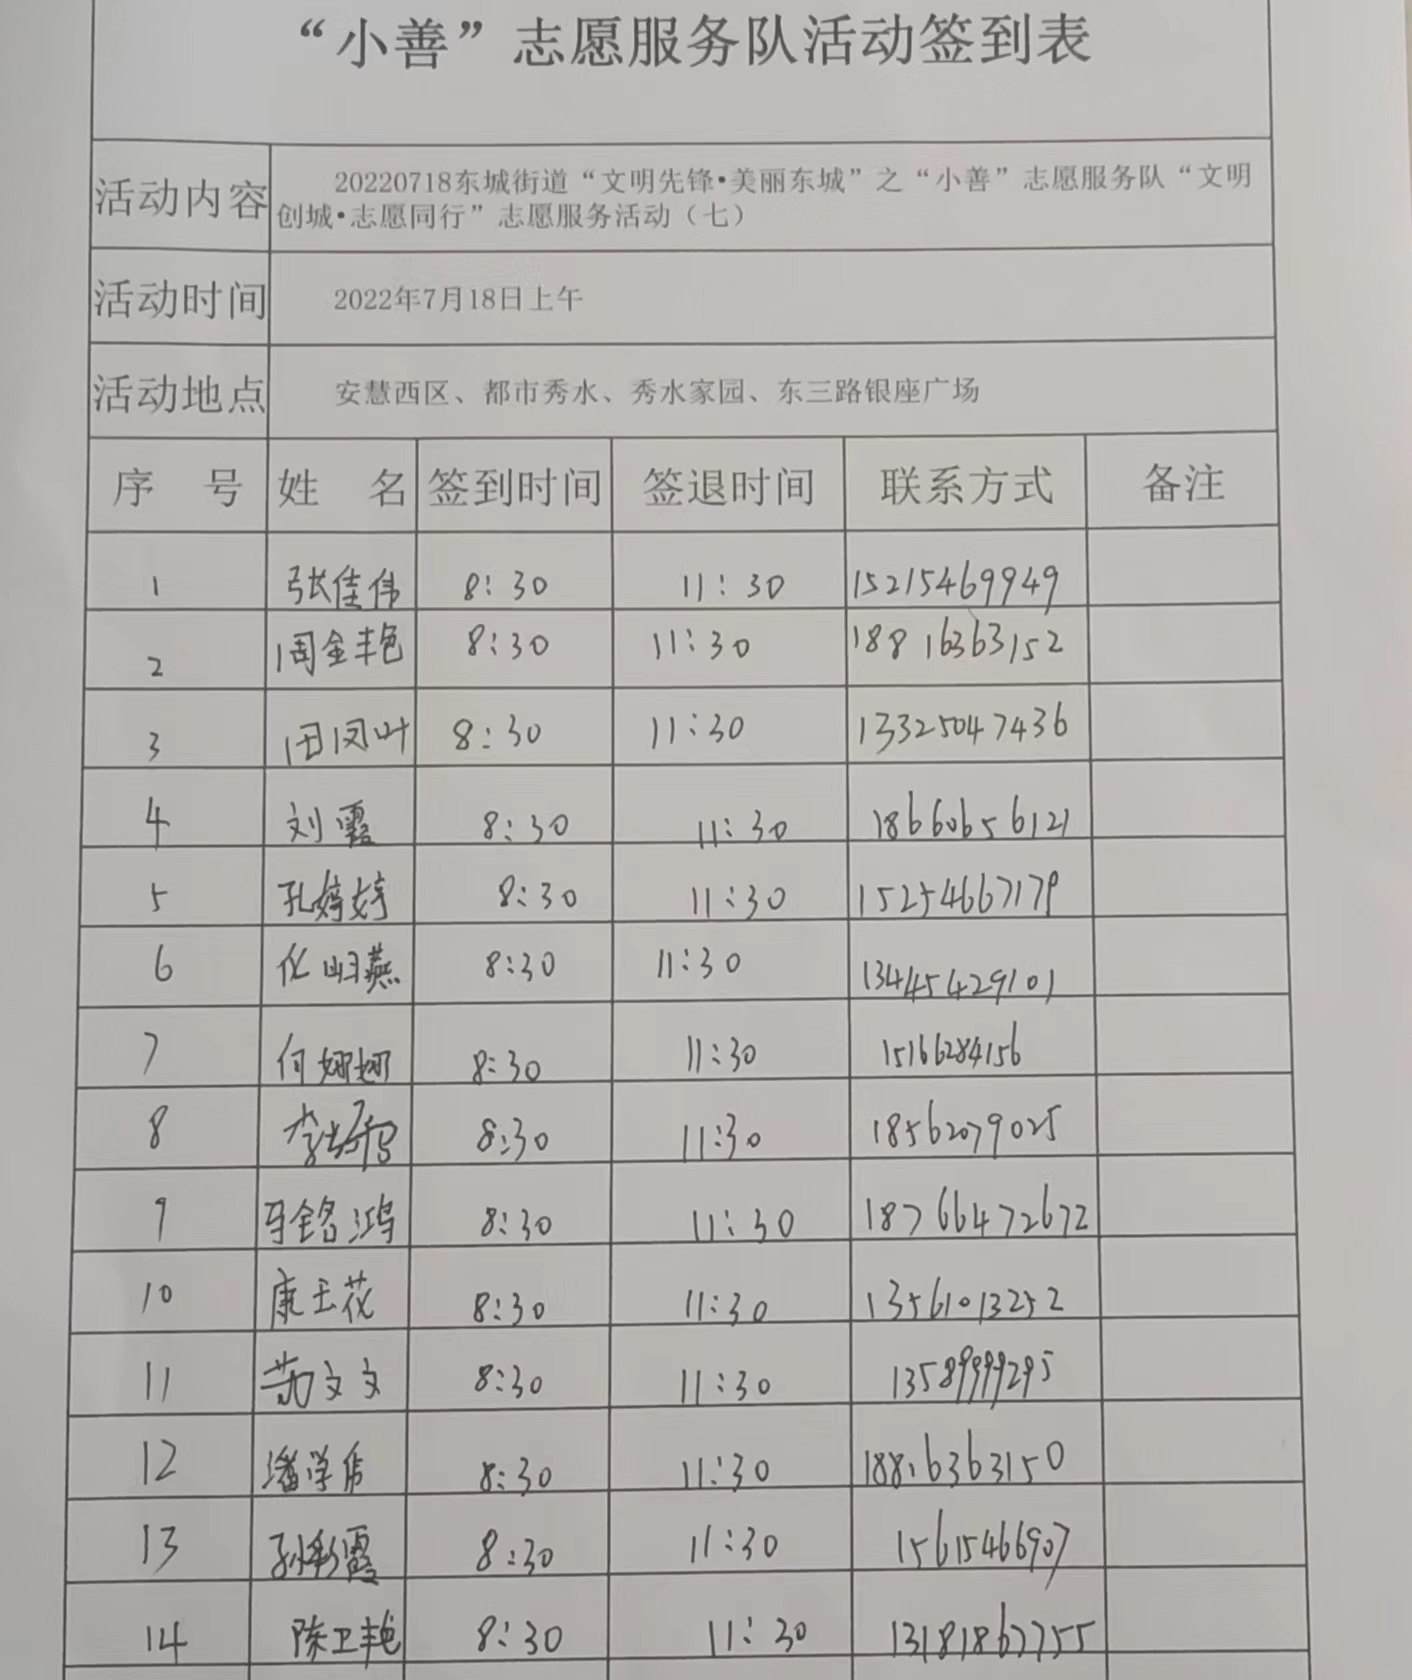 “小善”志愿服务队活动签到表
活动内容 20220718东城街道“文明先锋·美丽东城”之“小善”志愿服务队“文明
创城·志愿同行”志愿服务活动（七）
活动时间 2022年7月18日上午
活动地点 安慧西区、都市秀水、秀水家园、东三路银座广场
序 号 姓 名 签到时间 签退时间 联系方式 备注
1 张佳伟 8:30 11:30 15215469949
2 周金艳 8:30 11:30 18816363152
3 田凤叶 8:30 11:30 13325047436
4 刘霞 8:30 11:30 18660656121
5 孔婷婷 8:30 11:30 15254667179
6 化岄燕 8:30 11:30 13445429101
7 何娜娜 8:30 11:30 15166284156
8 8:30 11:30 18562079025
9 马铭鸿 8:30 11:30 18766472672
10 康玉花 8:30 11:30 13561013252
11 文文 8:30 11:30 13589999295
12 潘学 8:30 11:30 18816363150
13 孙彩霞 8:30 11:30 15615466907
14 陈卫艳 8:30 11:30 13181867755